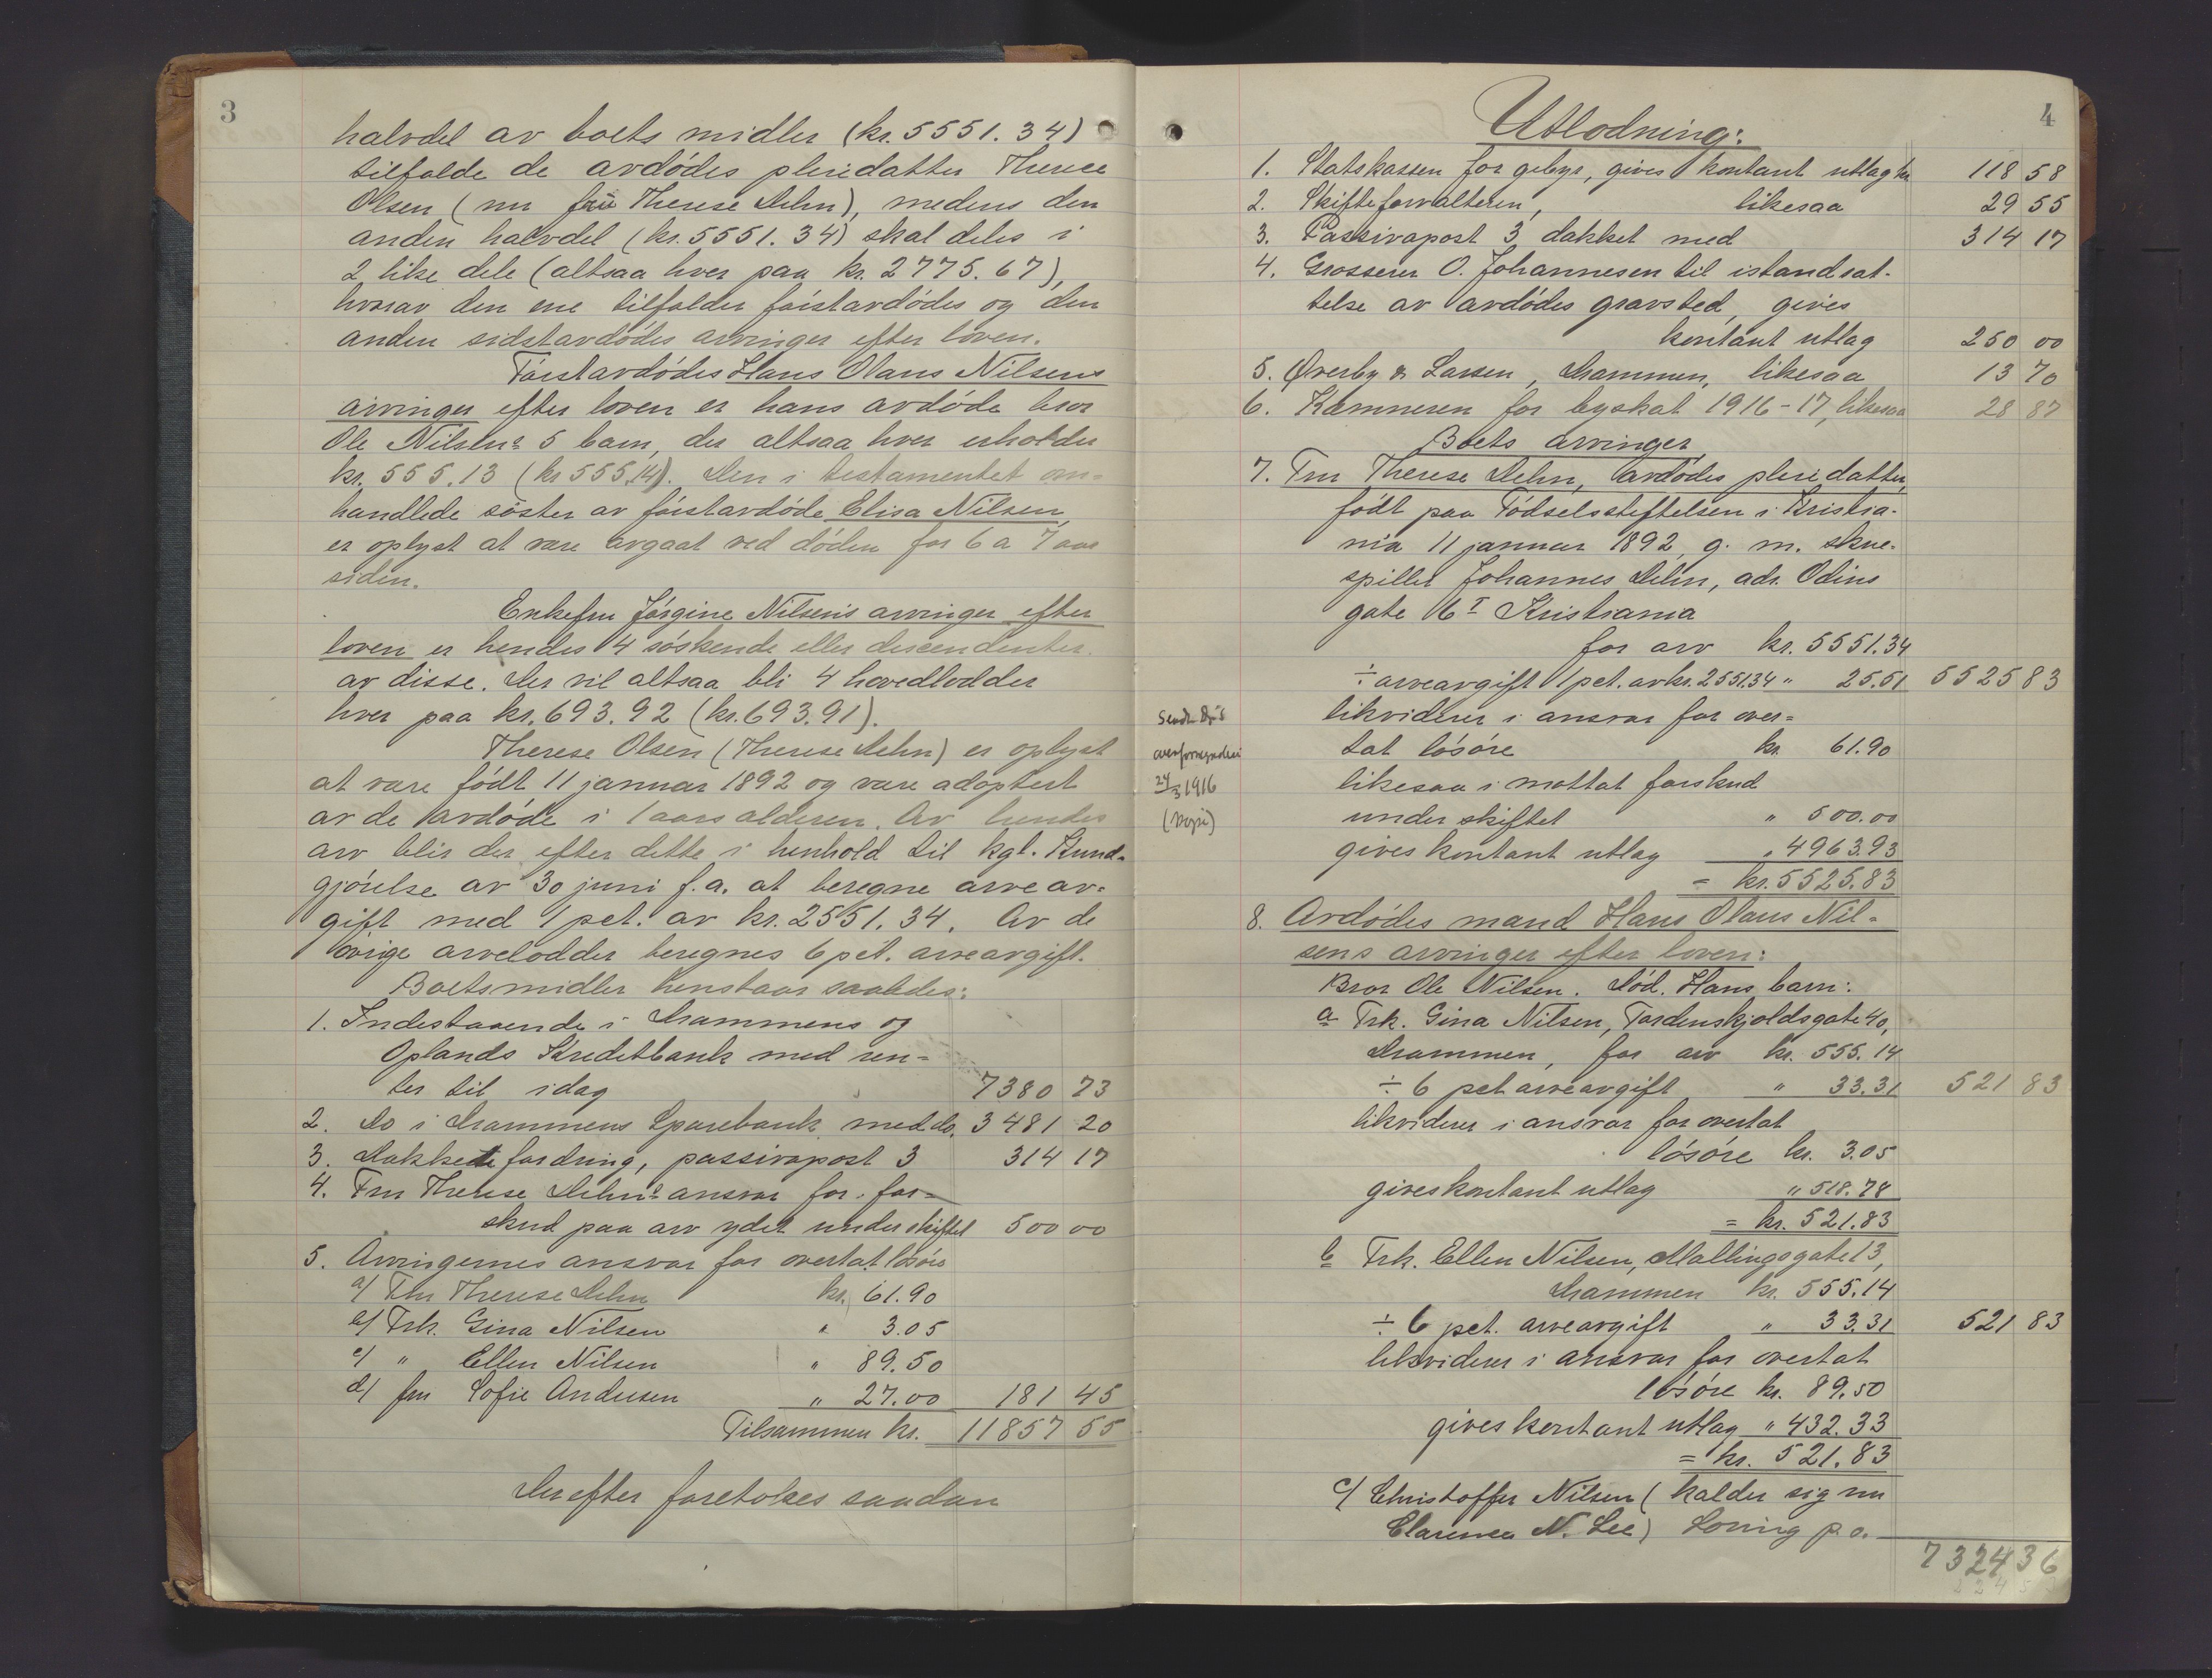 3
halvdel av boets midler (kr. 5551.34)
tilfalde de avdødes pleiedatter Therese
Olsen (nu frue Therese Dehn), medens den
anden halvdel (kr. 5551.34) skal deles i
2 like dele (altsaa hver paa kr. 2775.67),
hvorav den ene tilfalder førstavdødes og den
anden sidstavdødes arvinger efter loven.
Førstavdødes Hans Olaus Nilsens
arvinger efter loven er hans avdøde bror
Ole Nilsens 5 barn, der altsaa hver erholder
kr. 555.13 (kr 555.14). Den i testamentet om-
handlede søster av førstavdøde Elisa Nilsen,
er oplyst at være avgaat ved døden for 6 a 7 aar
siden.
Enkefru Jørgine Nilsens arvinger efter
loven er hendes 4 søskende eller descendenter
av disse. Der vil altsaa bli 4 hovedlodder
hver paa kr. 693.92 (kr. 693.91).
Therese Olsen (Therese Dehn) er oplyst
at være født 11 januar 1892 og være adoptert
av de avdøde i 1 aars alderen. Av hendes
arv blir der efter dette i henhold til kgl. Kund-
gjørelse av 30 juni f.a. at beregne arveav-
gift med 1 pct. av kr. 2551.34. Av de
øvrige arvelodder beregnes 6 pct. arveavgift.
Boets midler henstaar saaledes:
1. Indestaaende i Drammens og
Oplands Kreditbank med ren-
ter til idag 7380 73
2. Do i Drammens Sparebank med do. 3481 20
3. Dækkede fordring, passivapost 3 314 17
4. Fru Therese Dehns ansvar for for-
skud paa arv ydet under skiftet 500 00
5. Arvingernes ansvar for overtat løsøre
a/ Fru Therese Dehn kr. 61.90
b/ Frk. Gina Nilsen " 3.05
c/ " Ellen Nilsen " 89.50
d/ fru Sofie Andersen " 27.00 181 45
Tilsammen kr. 11857 55
Derefter foretokes saadan
4
Utlodning:
1. Statskassen for gebyr, gives kontant utlag kr 118 58
2. Skifteforvalteren, likesaa 29 55
3. Passivapost 3 dækket med 314 17
4. Grosserer O. Johannesen til istandsat-
telse av avdødes gravsted, gives
kontant utlag 250 00
5. Øverby & Larsen, Drammen, likesaa 13 70
6. Kæmneren for byskat 1916-17, likesaa 28 87
Boets arvinger
7. Fru Therese Dehn, avdødes pleiedatter,
født paa Fødselsstiftelsen i Kristia-
nia 11 januar 1892, g. m. skue-
spiller Johannes Dehn, adr. Odins
gate 16 I Kristiania
for arv kr. 5551.34
÷ arveavgift 1 pct. av kr. 2551.34 " 25.51 5525 83
likviderer i ansvar for over-
tat løsøre kr. 61.90
likesaa i mottat forskud
under skiftet " 500.00
gives kontant utlag " 4963.93
= kr. 5525.83
Sendt
overformynderi
24/3 1916
(kopi)
8. Avdødes mand Hans Olaus Nil-
sens arvinger efter loven:
Bror Ole Nilsen. Død. Hans barn:
a Frk. Gina Nilsen, Tordenskjoldsgate 40,
Drammen, for arv kr. 555.14
÷ 6 pct arveavgift " 33.31 521 83
likviderer i ansvar for overtat
løsøre kr. 3.05
gives kontant utlag " 518.78
= kr. 521.83
b Frk. Ellen Nilsen, Mallingsgate 13,
Drammen kr. 555.14
÷ 6 pct. arveavgift " 33.31 521 83
likviderer i ansvar for overtat
løsøre kr. 89.50
gives kontant utlag " 432.33
= kr. 521.83
c/ Christoffer Nilsen (kalder sig nu
Clarence N. Lee) Loring p.o.
7324 36